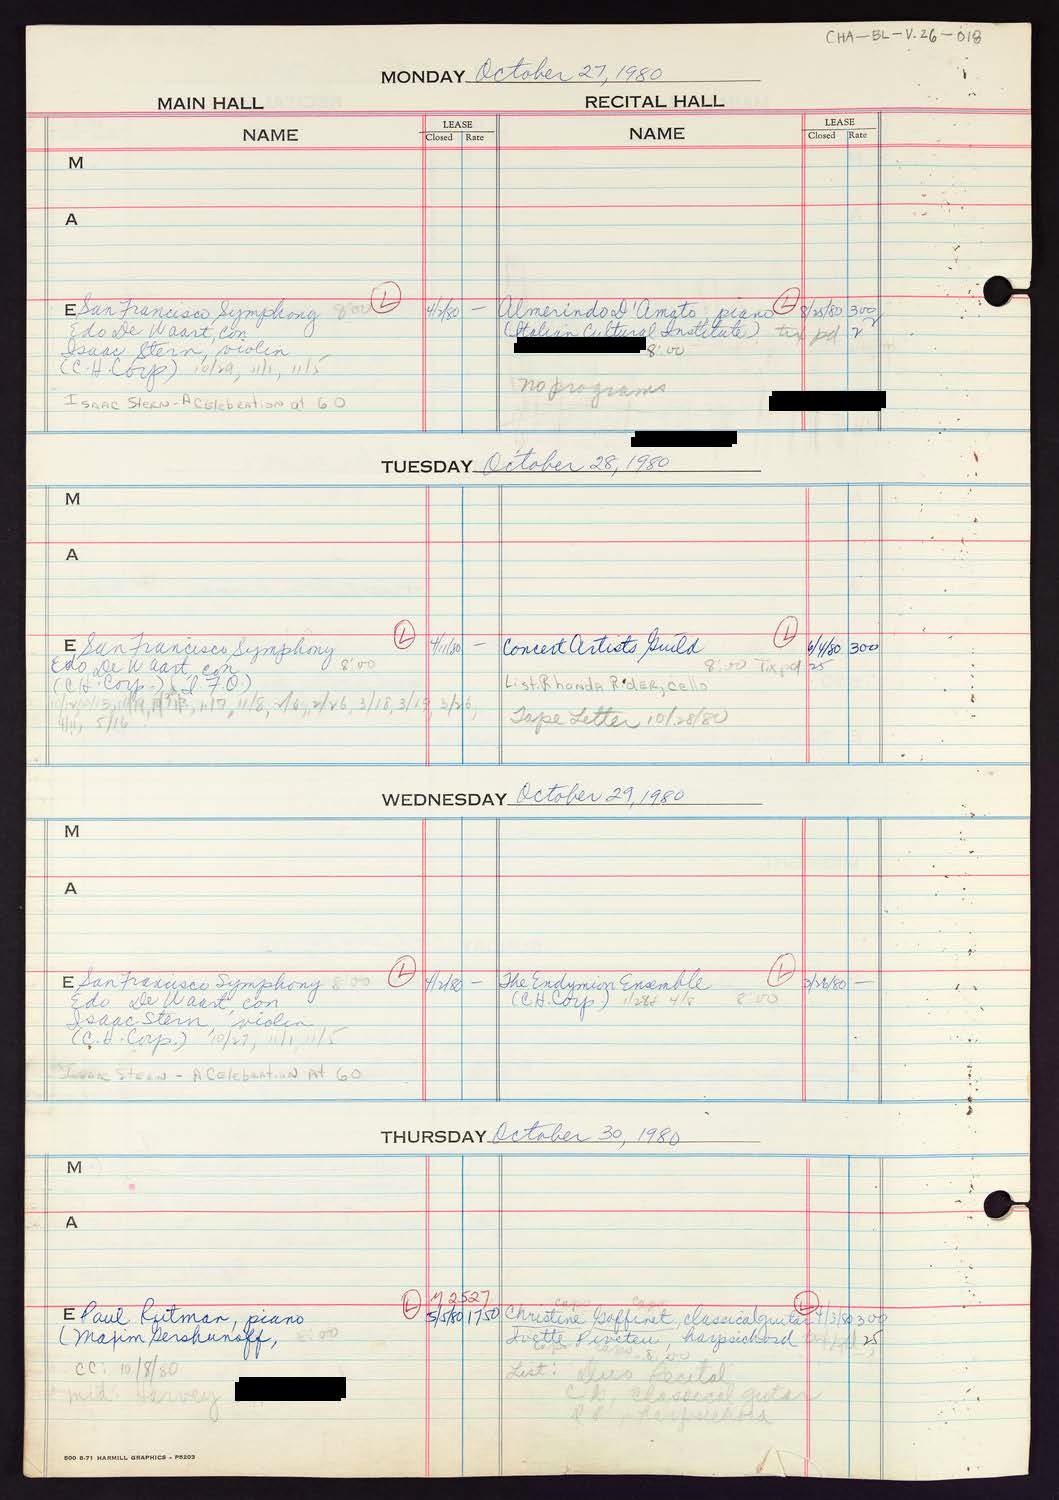 CHA-BL-V.26-018
MONDAY October 27, 1980
MAIN HALL
RECITAL HALL
NAME
LEASE
Closed Rate
NAME
LEASE
Closed Rate
M
A
E San Francisco Symphony 8:00 L 4/2/80 —
Edo De Waart, con
Isaac Stern, violin
(C.H. Corp) 10/29, 11/1, 11/5
ISAAC STERN - A Celebration at 60
Almerindo D'Amato, piano L 8/25/80 300
(Italian Cultural Institute) tix pd 2
8:00
no programs
TUESDAY October 28, 1980
M
A
E San Francisco Symphony L 4/11/80 —
Edo De Waart, con 8:00
(C.H. Corp.) (I.F.O.)
11/7, 11/8, 2/26, 3/18, 3/19, 3/26,
5/16
Concert Artists Guild L 6/4/80 300
8:00 Tix pd 25
List: Rhonda Rider, cello
Tape Letter 10/28/80
WEDNESDAY October 29, 1980
M
A
E San Francisco Symphony 8:00 L 4/2/80 —
Edo De Waart, con
Isaac Stern, violin
(C.H. Corp.) 10/27, 11/1, 11/5
Isaac Stern - A Celebration At 60
The Endymion Ensemble L 3/26/80 —
(C.H. Corp.) 1/28 & 4/8 8:00
THURSDAY October 30, 1980
M
A
M 2527
E Paul Rutman, piano L 5/5/80 1750
(Maxim Gershunoff,
CC: 10/8/80
mid: Harvey
Christine Gaffinet, classical guitar L 4/3/80 300
Ivette Piveteu, harpsichord 25
8:00
List: Duo Recital
C G, classical guitar
harpsichord
500 6-71 HARMILL GRAPHICS - P5203